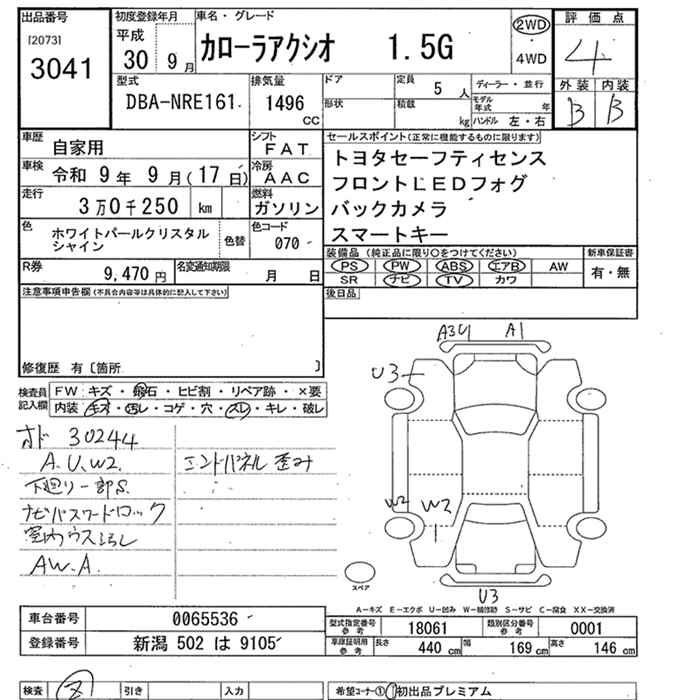 出品番号 初度登録年月 車名・グレード 評価点
[2073] 平成 カローラアクシオ 1.5G 2WD 4
3041 30年 9月 4WD 外装 内装
型式 排気量 ドア 定員 5人 ディーラー・並行 B B
DBA-NRE161 1496 CC 形状 積載 kg モデル年式 年 ハンドル 左・右
車歴 自家用 シフト FAT セールスポイント(正常に機能するものに限ります)
車検 令和 9年 9月(17日) 冷房 AAC トヨタセーフティセンス
走行 3万0千250 km 燃料 ガソリン フロントLEDフォグ
色 ホワイトパールクリスタルシャイン 色替 色コード 070 バックカメラ
スマートキー
R券 9,470円 名変通知期限 月 日 装備品(純正品に限り○をつけてください) 新車保証書
PS PW ABS エアB AW 有・無
SR ナビ TV カワ
注意事項申告欄(不具合内容等は具体的に記入して下さい) 後日品
修復歴 有〔箇所 〕
A3U A1
U3
検査員記入欄 FW:キズ・飛石・ヒビ割・リペア跡・×要
内装:キズ・汚レ・コゲ・穴・スレ・キレ・破レ
オド 30244
A.U.W2. エンドパネル歪み
下廻り一部S.
ナビパスワードロック
室内ウス汚し
AW.A.
W2 W2
スペア U3
A-キズ E-エクボ U-凹み W-補修跡 S-サビ C-腐食 XX-交換済
車台番号 0065536 型式指定番号 参考 18061 類別区分番号 参考 0001
登録番号 新潟 502 は 9105 車庫証明用 参考 長さ 440 cm 幅 169 cm 高さ 146 cm
検査 引き 入力 希望コーナー ① 初出品プレミアム